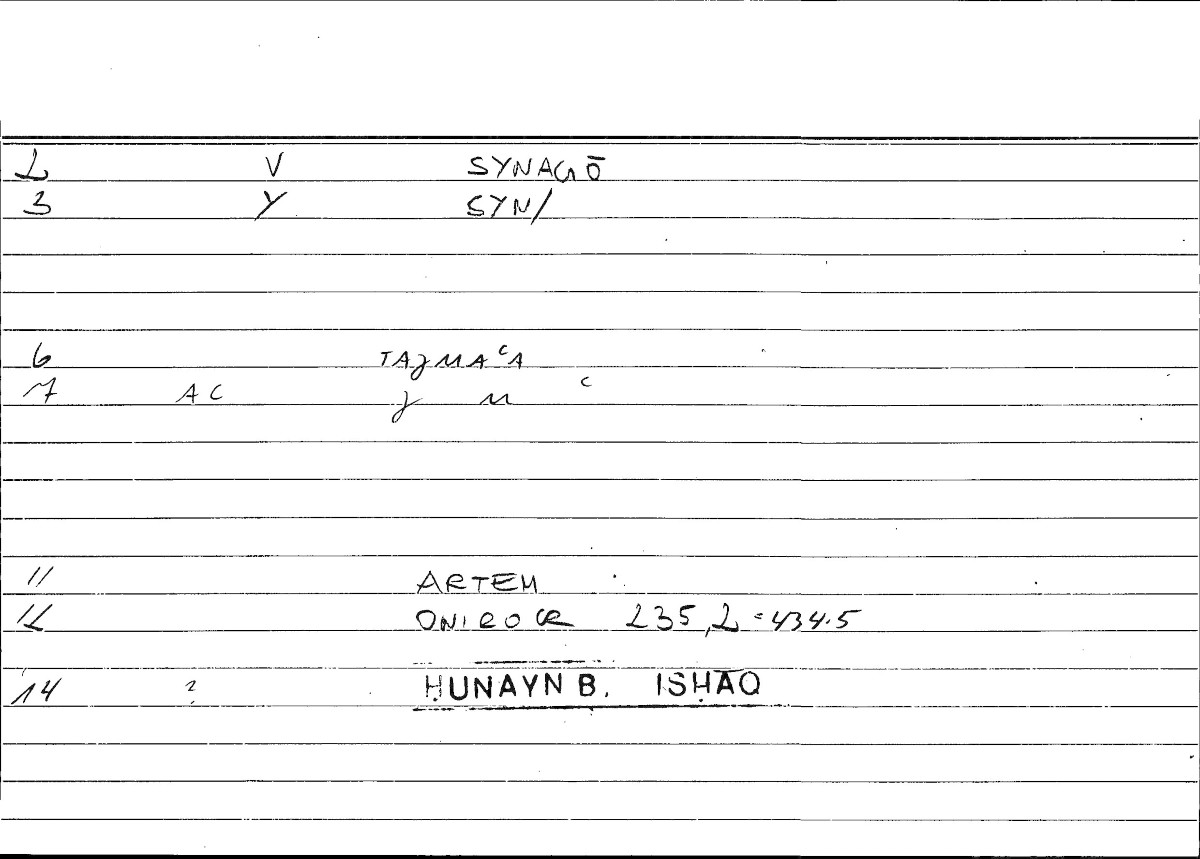 2 V SYNAGŌ
3 Y SYN/
6 TAJMAʿA
7 AC J M ʿ
11 ARTEM
12 ONIROCR 235,2 = 434.5
14 ? ḤUNAYN B. ISḤĀQ